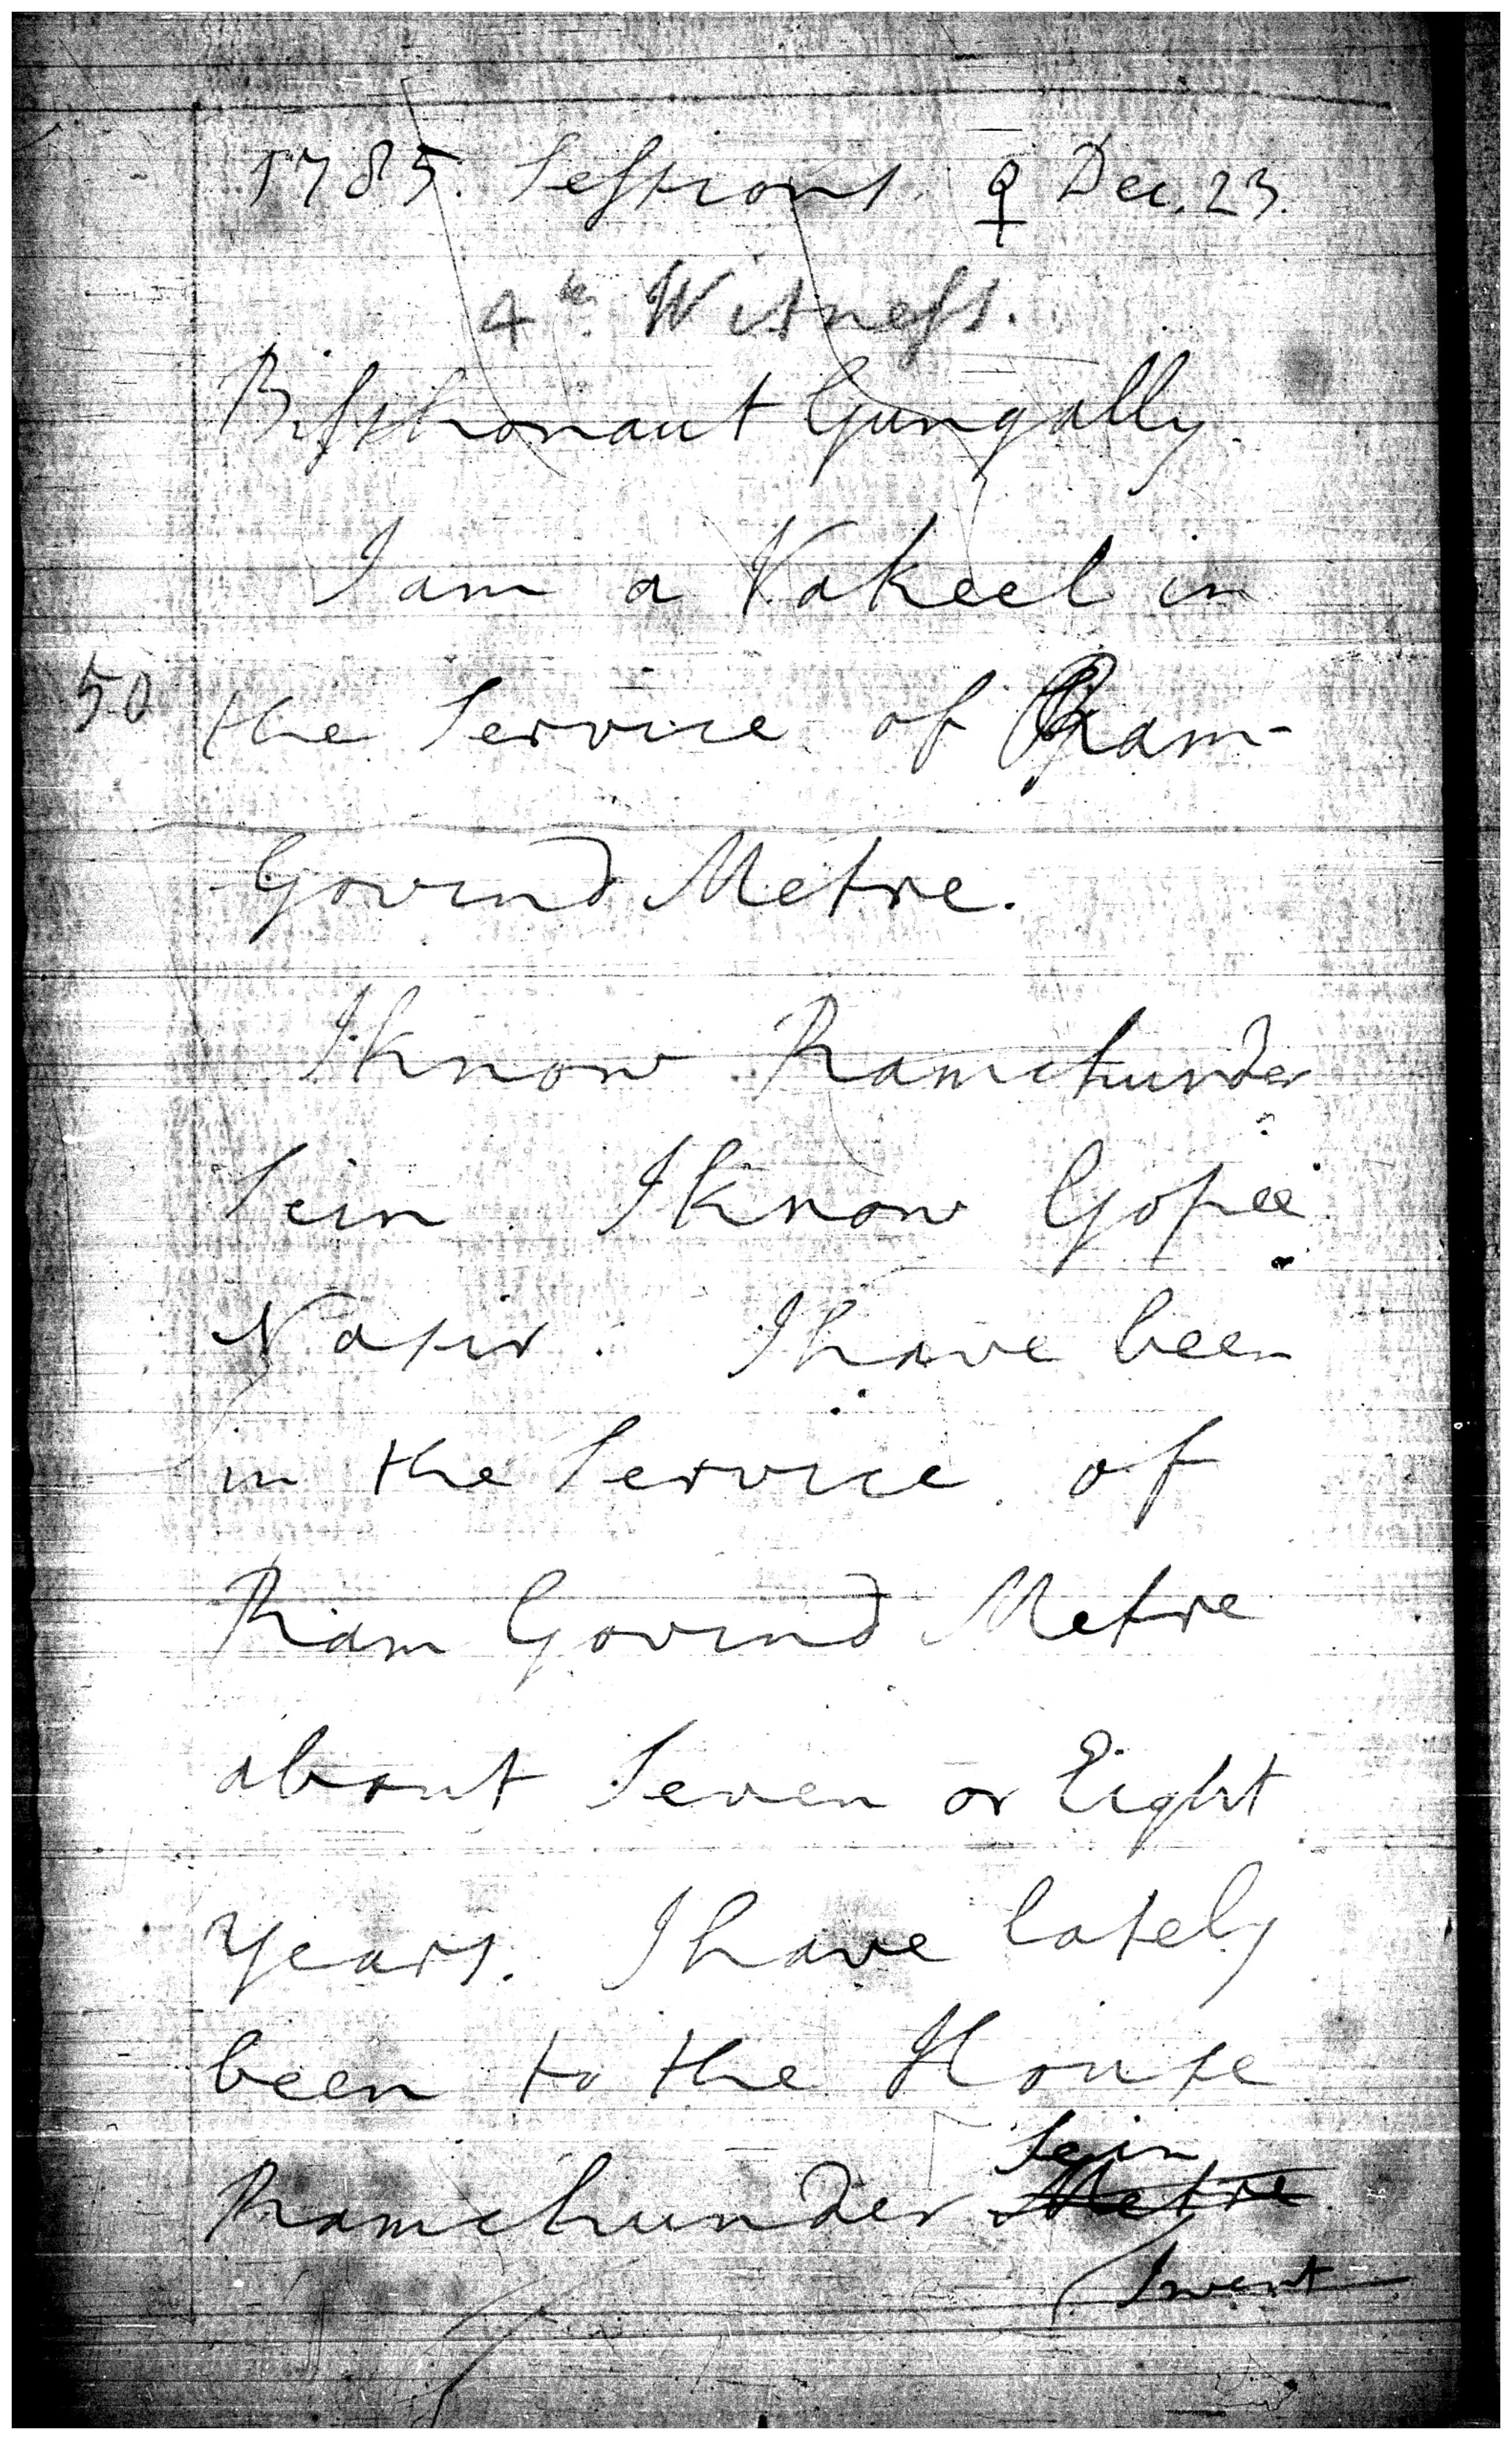 1785. Sessions. ♀ Dec. 23.
4th Witness.
Bisshonaut Gungolly.
I am a Vakeel in
50 the Service of Ram-
Govind Metre.
I know Ramchunder
Sein. I know Gopee
Nasir. I have been
in the Service of
Ram Govind Metre
about Seven or Eight
Years. I have lately
been to the House
Sein
Ramchunder Metre
I went